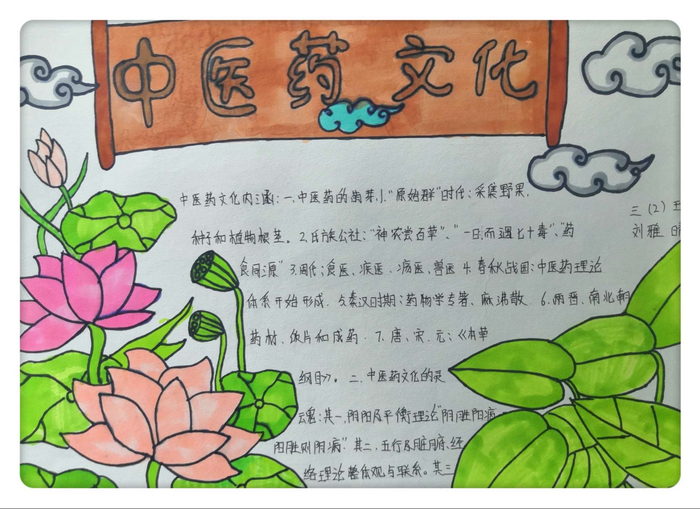 中医药文化
中医药文化内涵:一.中医药的萌芽.1."原始群"时代:采集野果.
三(2)
种子和植物根茎。2.氏族公社:"神农尝百草"、"一日而遇七十毒"、"药
刘雅
食同源" 3.周代:食医、疾医、疡医、兽医 4.春秋战国:中医药理论
体系开始形成. 5.秦汉时期:药物学专著、麻沸散. 6.两晋、南北朝
药材、饮片和成药. 7.唐、宋、元:《本草
纲目》。二.中医药文化的灵
魂:其一,阴阳及平衡理论"阴胜阳病
阳胜则阴病".其二.五行及脏腑.经
络理论整体观与联系。其三